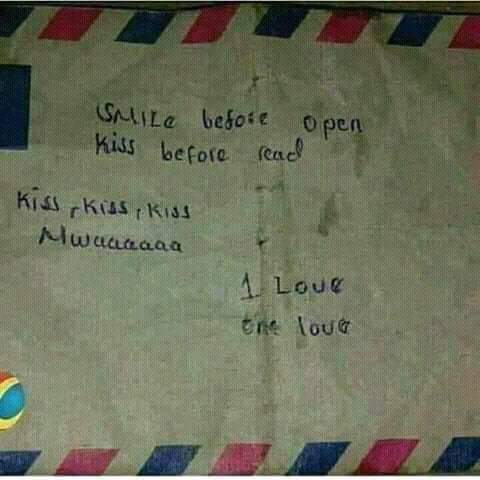 SMILe before open
Kiss before read
Kiss, Kiss, Kiss
Mwaaaaaaa
1 Love
one love